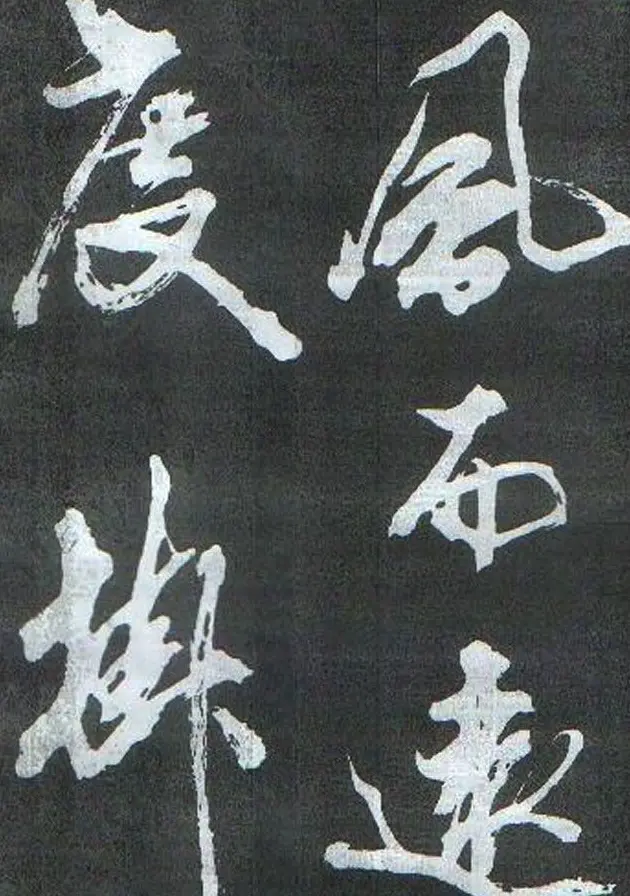 風而遠
度掛